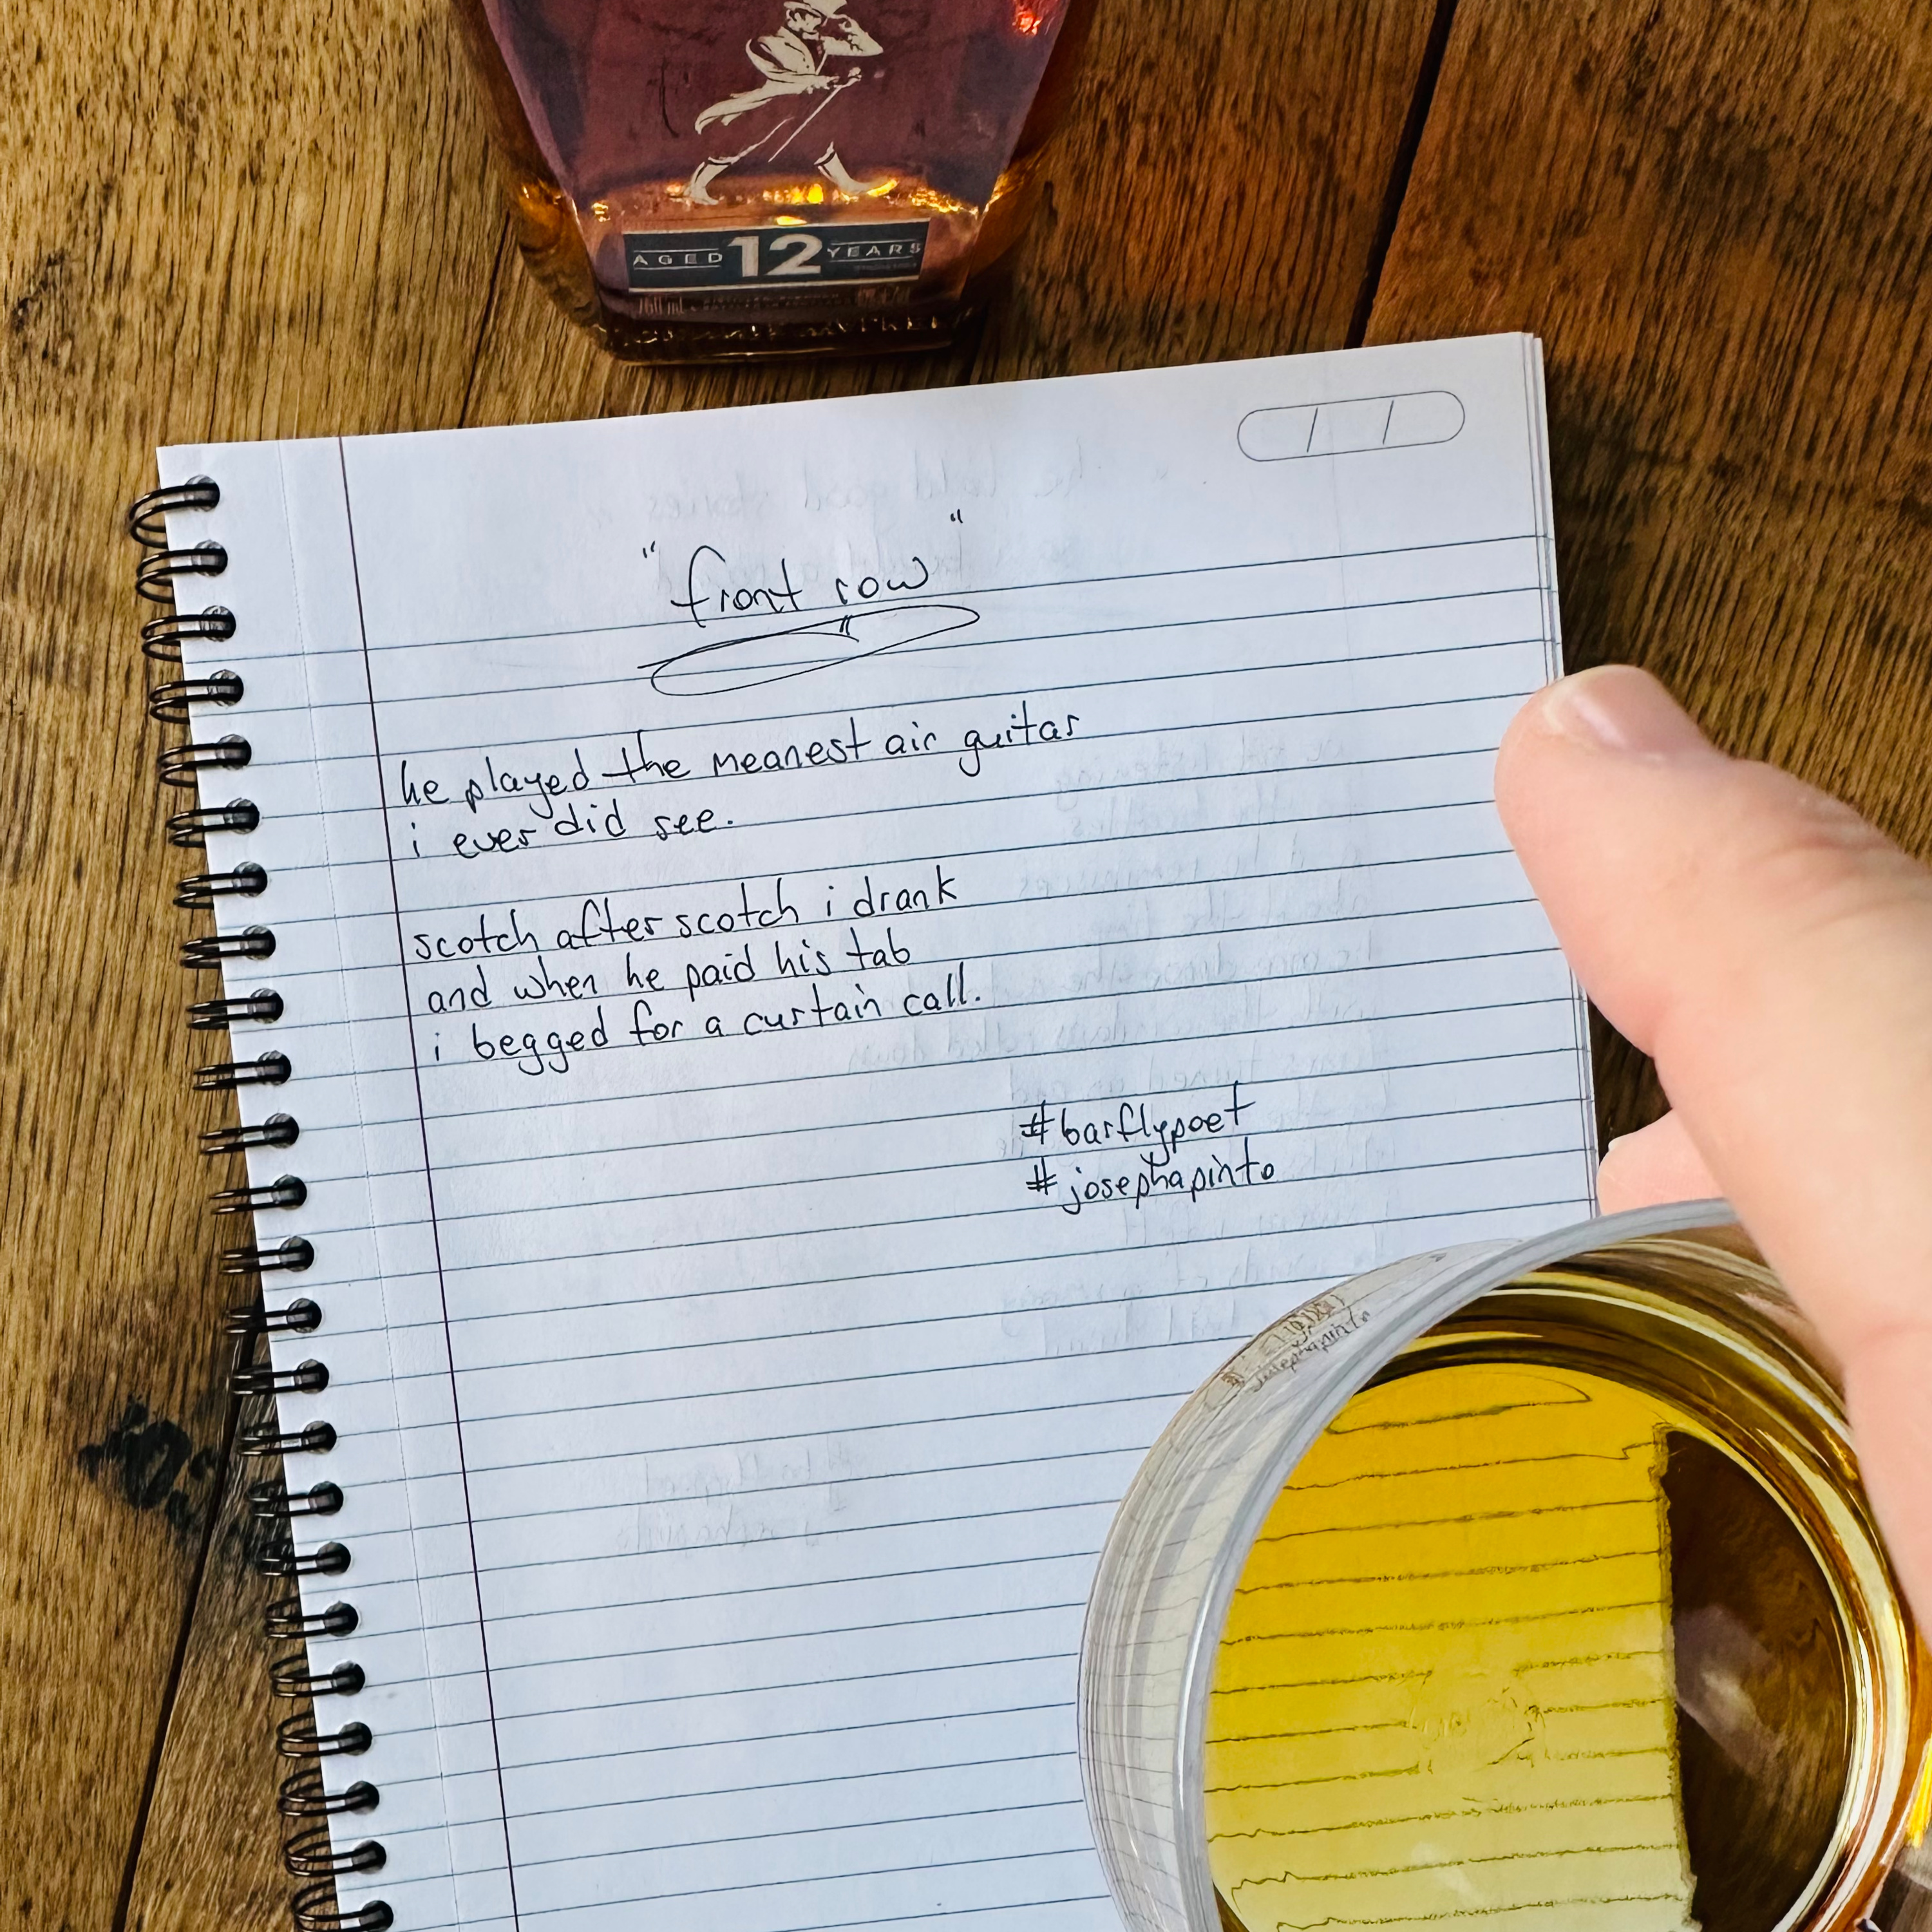 AGED 12 YEARS
"front row"
he played the meanest air guitar
i ever did see.
scotch after scotch i drank
and when he paid his tab
i begged for a curtain call.
#barflypoet
#josephapinto